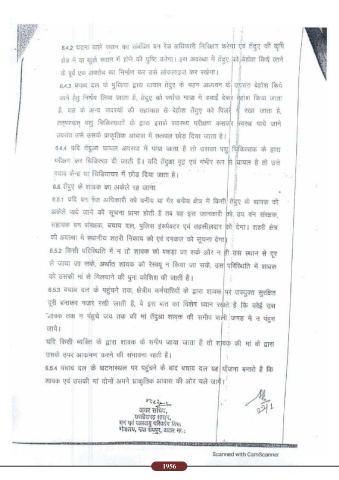 6.4.2 घटना वाले स्थान का संबंधित वन रेंज अधिकारी निरीक्षण करेगा एवं तेंदुए की कृषि
क्षेत्र में या खुले स्थान में होने की पुष्टि करेगा। इस अवस्था में तेंदुए को बेहोश किये जाने
के पूर्व एक अवरोध का निर्माण कर उसे लोकलाइज कर रखेगा।
6.4.3 बचाव दल के मुखिया द्वारा घायल तेंदुए के गहन अध्ययन के उपरांत बेहोश किये
जाने हेतु निर्णय लिया जाता है, तेंदुए को पर्याप्त मात्रा में दवाई देकर बेहोश किया जाता
है, दल के अन्य सदस्यों की सहायता से बेहोश तेंदुए को पिंजरे में रखा जाता है,
तत्पश्चात् पशु चिकित्सकों के द्वारा इसके स्वास्थ्य परीक्षण कराकर स्वस्थ पाये जाने
उपरांत उसे उसके प्राकृतिक आवास में तत्काल छोड़ दिया जाता है।
6.4.4 यदि तेंदुआ घायल अवस्था में पाया जाता है तो उसका पशु चिकित्सक के द्वारा
परीक्षण कर चिकित्सा की जाती है। यदि तेंदुआ वृद्ध एवं गंभीर रूप से घायल है तो उसे
बचाव केन्द्र या चिड़ियाघर में छोड़ दिया जाता है।
6.5 तेंदुए के शावक का अकेले रह जाना
6.5.1 यदि वन रेंज अधिकारी को वनीय या गैर वनीय क्षेत्र में किसी तेंदुए के शावक की
अकेले पाये जाने की सूचना प्राप्त होती है तब वह इस जानकारी को उप वन संरक्षक,
सहायक वन संरक्षक, बचाव दल, पुलिस इंस्पेक्टर एवं तहसीलदार को देगा। शहरी क्षेत्र
की अवस्था में स्थानीय शहरी निकाय को एवं दमकल को सूचना देगा।
6.5.2 किसी परिस्थिति में न तो शावक को पकड़ा जा सके और न ही उस स्थान से दूर
ले जाया जा सके, अर्थात शावक को रेस्क्यू न किया जा सके, उस परिस्थिति में शावक
को उसकी मां से मिलवाने की पुनः कोशिश की जाती है।
6.5.3 बचाव दल के पहुंचने तक, क्षेत्रीय कर्मचारियों के द्वारा शावक पर उपयुक्त सुरक्षित
दूरी बनाकर नजर रखी जाती है, वे इस बात का विशेष ध्यान रखते है कि कोई उस
शावक तक न पहुंचे जब तक की मां तेंदुआ शावक की समीप वाली जगह में न पहुंच
जाये।
यदि किसी व्यक्ति के द्वारा शावक के समीप जाया जाता है तो शावक की मां के द्वारा
उसके उपर आक्रमण करने की संभावना रहती है।
6.5.4 बचाव दल के घटनास्थल पर पहुंचने के बाद बचाव दल यह योजना बनाते है कि
शावक एवं उसकी मां दोनों अपने प्राकृतिक आवास की ओर चले जायें।
अवर सचिव,
छत्तीसगढ़ शासन,
वन एवं जलवायु परिवर्तन विभाग
1956
Scanned with CamScanner